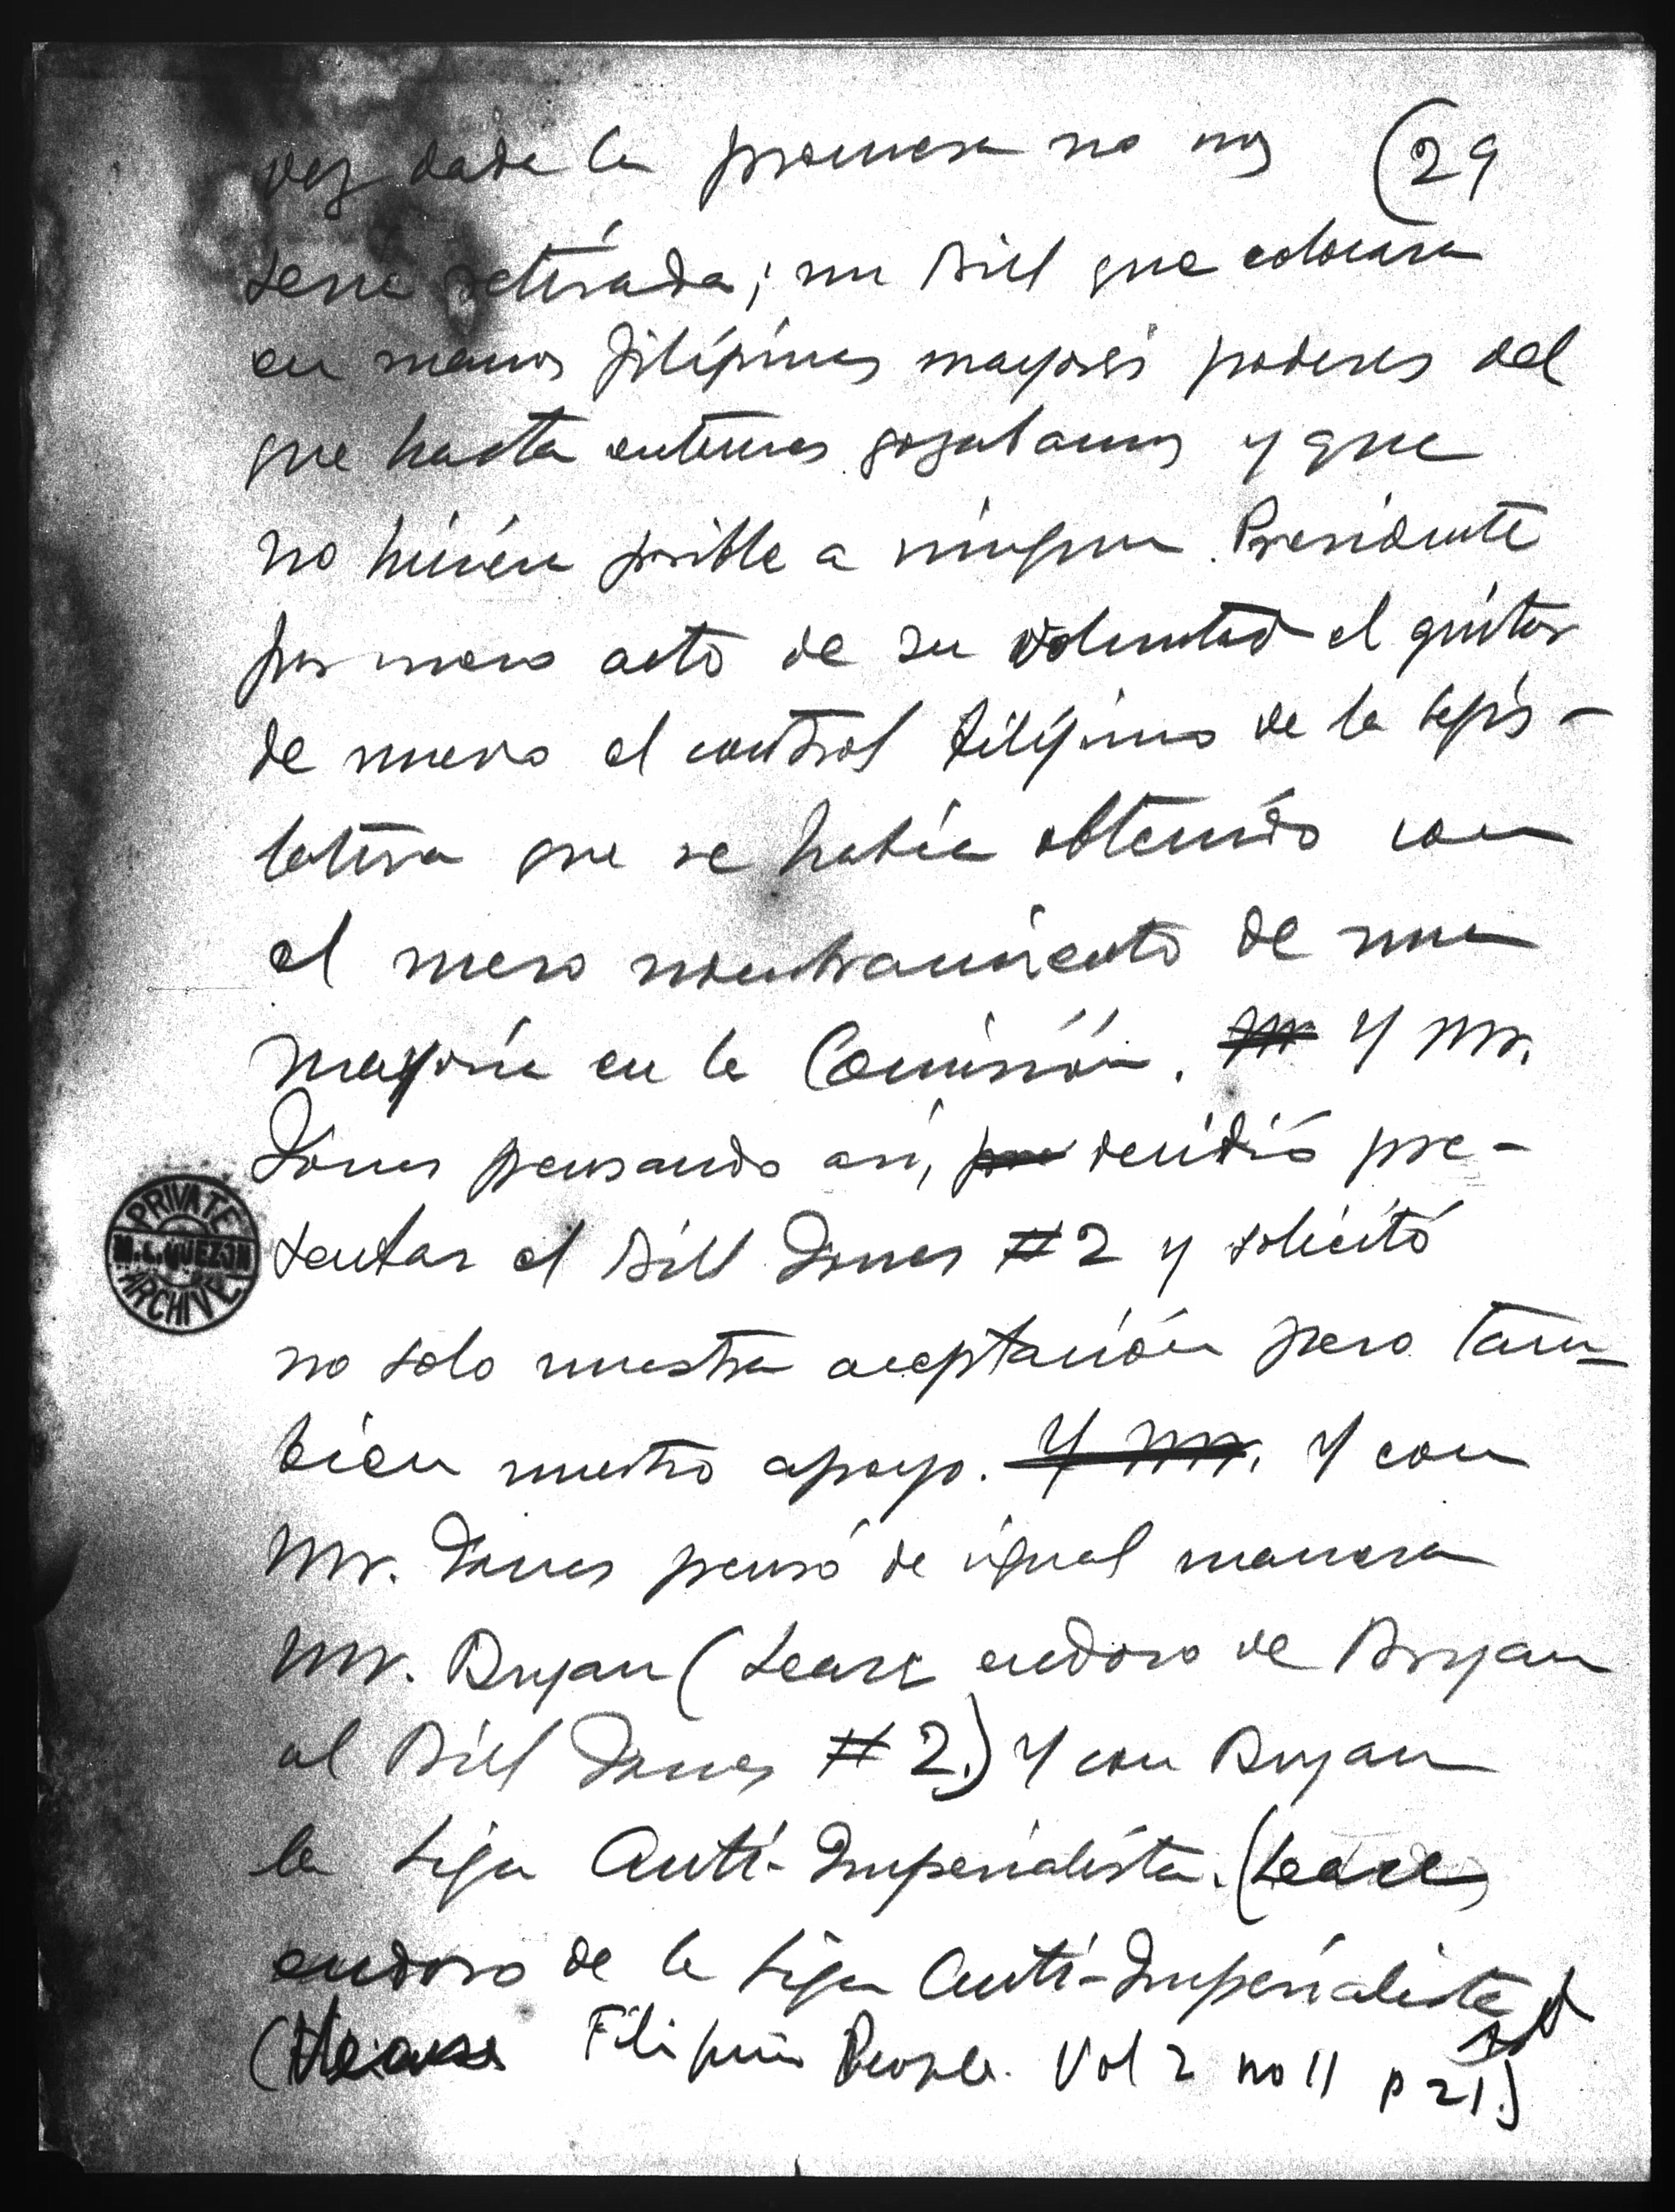 vez dada la promesa no nos (29
seria retirada; un Bill que colocara
en manos filipinas mayores poderes del
que hasta entonces gozabamos y que
no hiciera posible a ningun Presidente
por mero acto de su voluntad el quitar
de nuevo el control filipino de la legis-
lativa que se había obtenido con
el mero nombramiento de una
mayoría en la Comisión. Mr Y Mr.
Jones pensando así, pre decidió pre-
sentar el Bill Jones #2 y solicitó
no solo nuestra aceptación pero tam-
bien nuestro apoyo. Y Mr. Y con
Mr. Jones pensó de igual manera
Mr. Bryan (Lease endoso de Bryan
al Bill Jones #2.) Y con Bryan
la Liga Anti-Imperialista. (Lease
endoso de la Liga Anti-Imperialista
(Lease Filipino People. Vol 2 no 11 p 21.)
PRIVATE
M.L. QUEZON
ARCHIVE